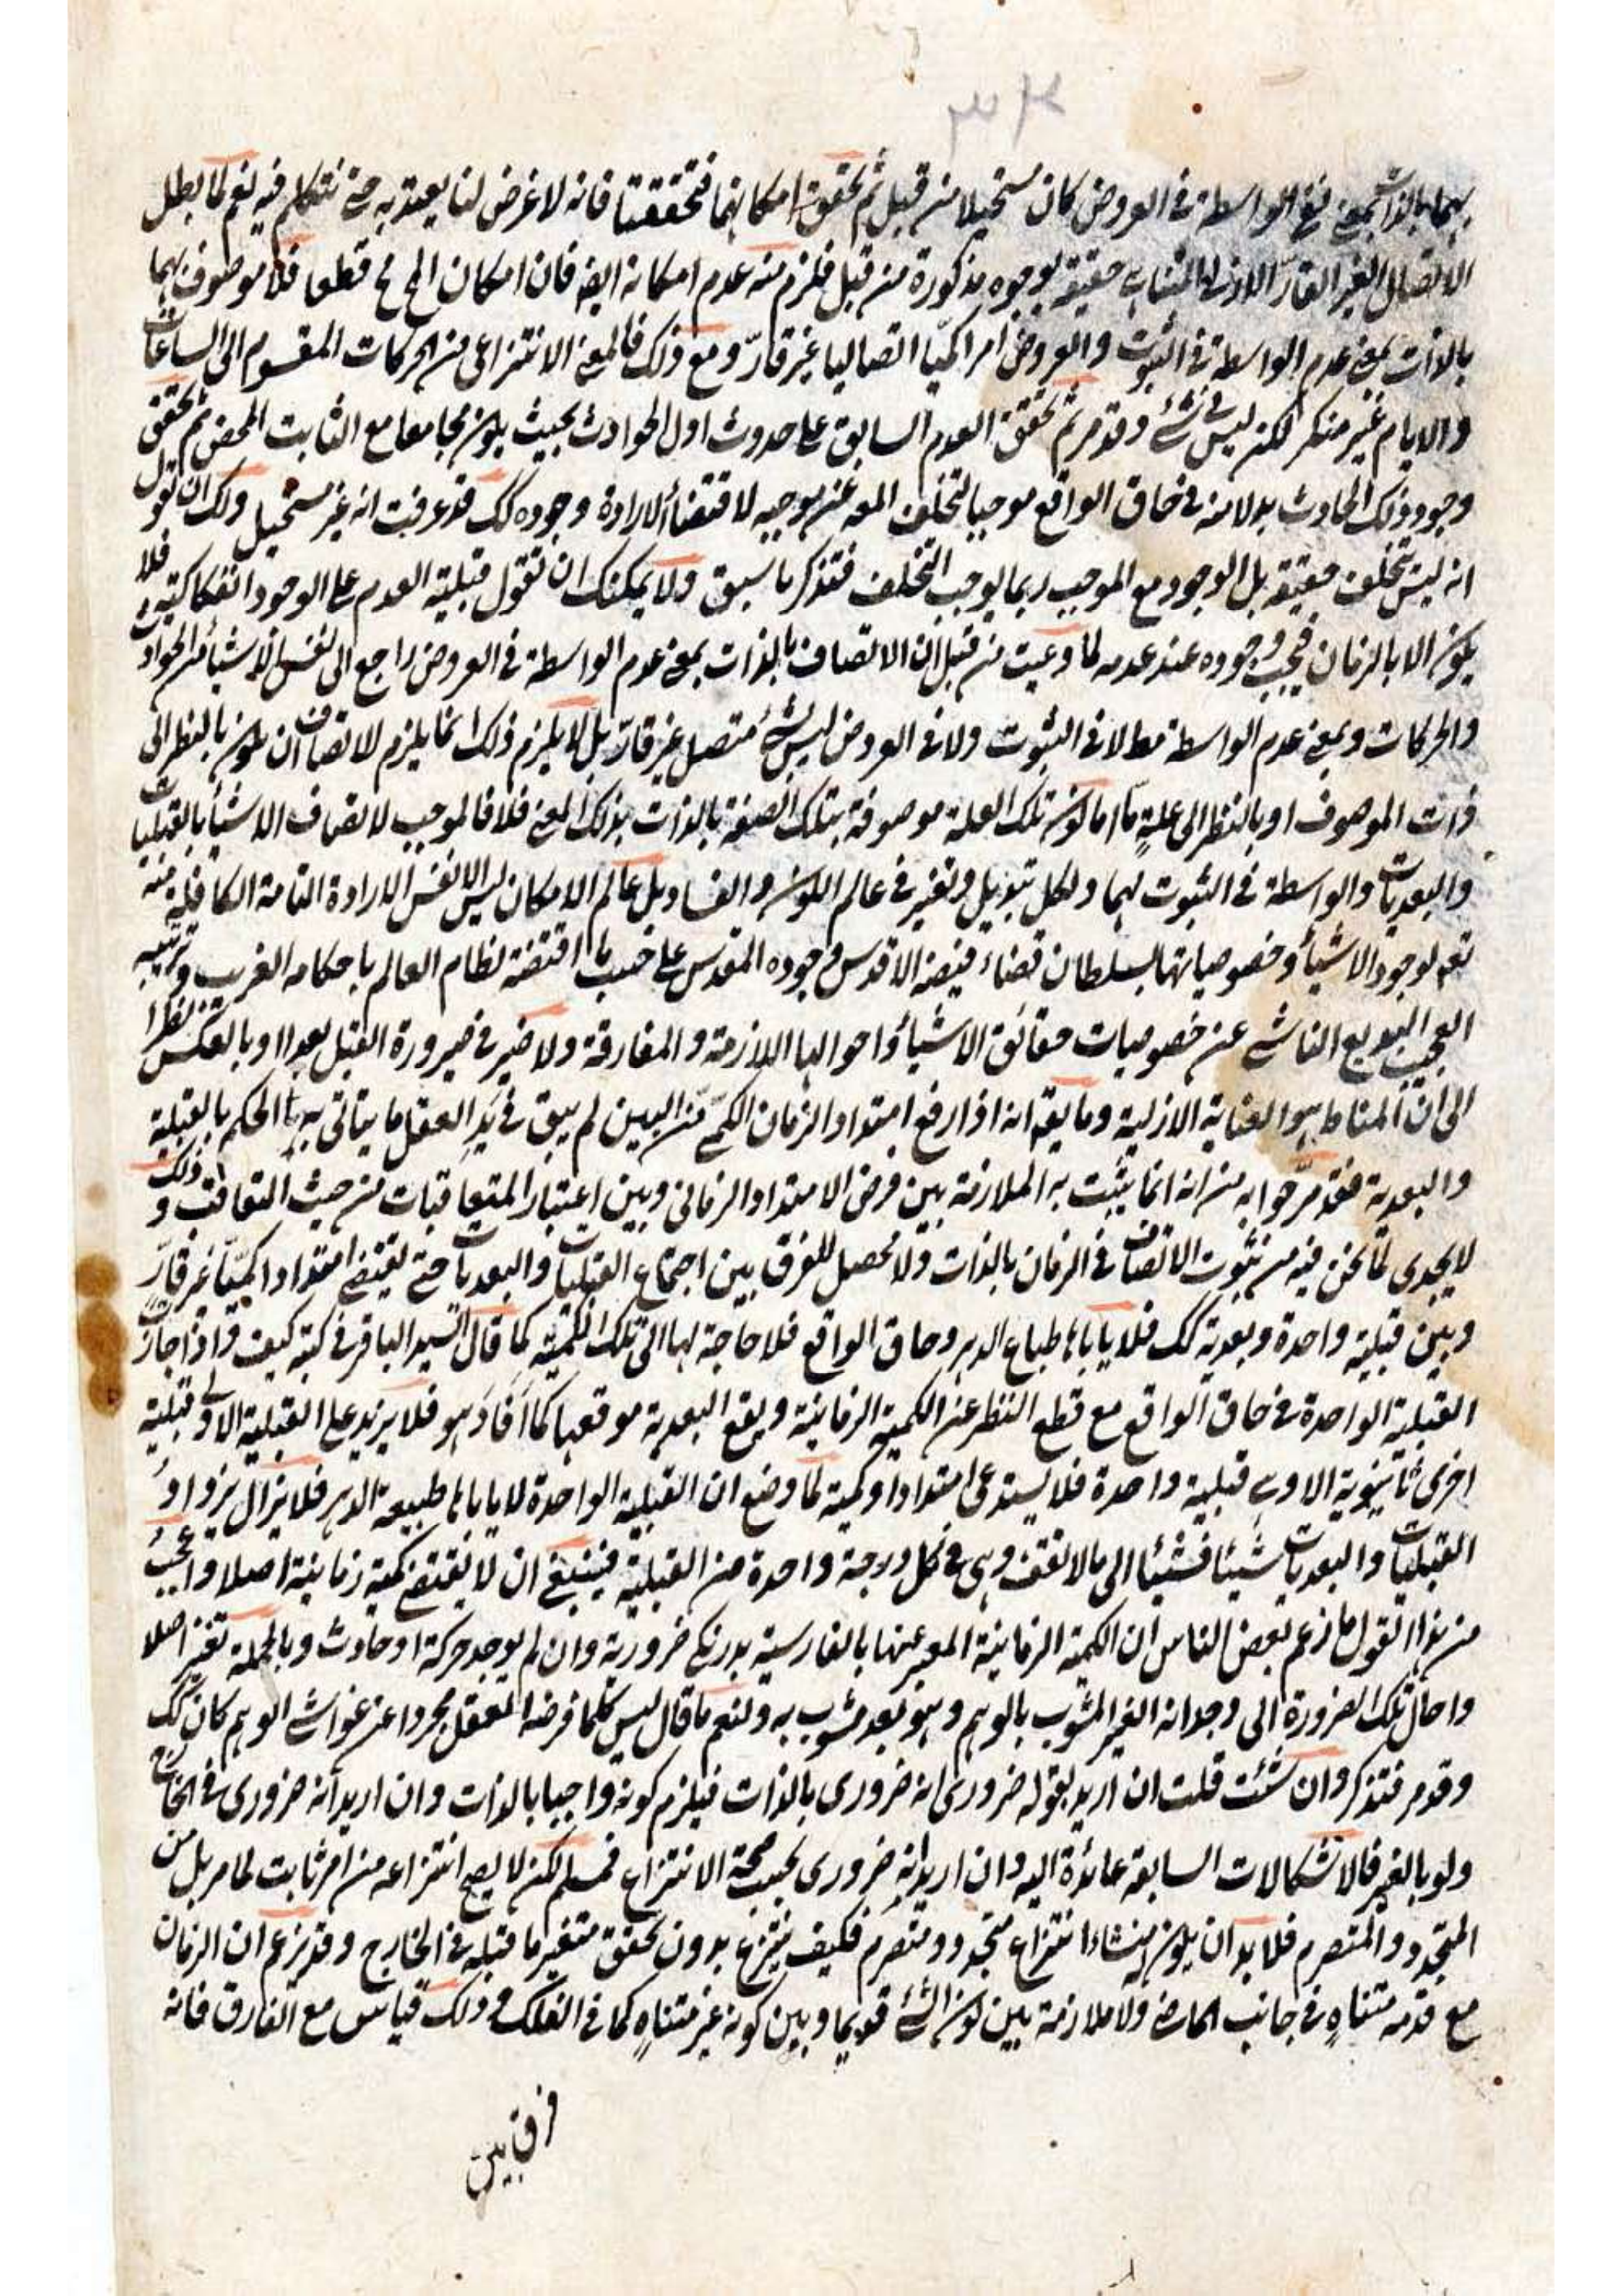 بهما بالذات بمعنى نفي الواسطة في العروض كان مستحيلا من قبل ثم تحقق امكانهما فتحققتا فانه لا غرض لنا يعتد به حتى نتكلم فيه نعم لما بطل
الاتصال الغير القار اللازم المتناهي حقيقة بوجوه مذكورة من قبل فلزم منه عدم امكانه ايضا فان امكان المح مح قطعا فلا موصوف بهما
بالذات بمعنى عدم الواسطة في الثبوت والعروض امرا كميا اتصاليا غير قار ومع ذلك فالمعنى الانتزاعي من الحركات المقسوم الى الساعات
والايام غير منكر لكن ليس في شئ وقد مر ثم تحقق العدم السابق على حدوث اول الحوادث بحيث يكون مجامعا مع الثابت المحض ثم تحقق
وجود ذلك الحادث بدلا منه في حاق الواقع موجبا لتخلف المعه عن موجبه لاقتضاء الارادة وجوده كك قد عرفت انه غير مستحيل ولك ان تقول
انه ليس تخلف حقيقة بل الوجود مع الموجب ربما يوجب التخلف فتذكر ما سبق ولا يمكنك ان تقول قبلية العدم على الوجود انفكاكية فلا
يكون الا بالزمان فيجب وجوده عند عدمه لما وعيت من قبل ان الاتصاف بالذات بمعنى عدم الواسطة في العروض راجع الى نفس الاشياء من الحوادث
والحركات وبمعنى عدم الواسطة مط لا في الثبوت ولا في العروض ليس لشئ متصل غير قار بل لا يلزم ذلك انما يلزم للاتصاف ان يكون بالنظر الى
ذات الموصوف او بالنظر الى علة ما اما كون تلك العلة موصوفة بتلك الصفة بالذات بذلك المعنى فلا فالموجب لاتصاف الاشياء بالقبليات
والبعديات والواسطة في الثبوت لهما ولكل تبديل وتغير في عالم الكون والفساد بل عالم الامكان ليس الا نفس الارادة التامة الكافية منه
تعه لوجود الاشياء وخصوصياتها بسلطان قضاء فيضه الاقدس وجوده المقدس على حسب ما اقتضته نظام العالم باحكامه الغريب وترتيبه
العجيب البديع الناشي عن خصوصيات حقائق الاشياء واحوالها اللازمة والمفارقة ولا ضير في صيرورة القبل بعدا وبالعكس نظرا
الى ان المناط هو العناية الازلية وما يقه انه اذا رفع امتداد الزمان الكمي من البين لم يبق في يد العقل ما يتأتى به الحكم بالقبلية
والبعدية فقد مر جوابه من انه انما يثبت به الملازمة بين فرض الامتداد الزماني وبين اعتبار المتعاقبات من حيث التعاقب وذلك
لا يجدى لما نحن فيه من ثبوت الاتصاف في الزمان بالذات ولا محصل للفرق بين اجتماع القبليات والبعديات حتى يقتضي امتدادا كميا غير قار
وبين قبلية واحدة وبعدية كك فلا يأباها طباع الدهر وحاق الواقع فلا حاجة لها الى تلك الكمية كما قال السيد الباقر في كتبه كيف واذا جازت
القبلية الواحدة في حاق الواقع مع قطع النظر عن الكمية الزمانية ويقع البعدية موقعها كما افاد هو فلا يزيد على القبلية الاولى قبلية
اخرى ثانوية الاولى قبلية واحدة فلا يستدعى امتدادا وكمية لما وضع ان القبلية الواحدة لا يأباها طبيعة الدهر فلا يزال يزداد
القبليات والبعديات شيئا فشيئا الى ما لا تقف وهي في كل درجة واحدة من القبلية فينبغي ان لا يقتضي كمية زمانية اصلا واعجب
من هذا القول ما زعم بعض الناس ان الكمية الزمانية المعبر عنها بالفارسية بدرنك ضرورية وان لم يوجد حركة او حادث وبالجملة تغير اصلا
واحال تلك الضرورة الى وجدانه الغير المشوب بالوهم وهو بعد مشوب به ولنعم ما قال ليس كلما فرضه العقل مجردا عن غواشي الوهم كان كك
وقد مر فتذكر وان شئت قلت ان اريد بقوله ضرورى انه ضرورى بالذات فيلزم كونه واجبا بالذات وان اريد انه ضرورى في الخارج
ولو بالغير فالاشكالات السابقة عائدة اليه وان اريد انه ضرورى بحسب صحة الانتزاع فمسلم لكن لا يصح انتزاعه من امر ثابت لما مر بل من
المتجدد والمتصرم فلا بد ان يكون منشاء انتزاع متجدد ومتصرم فكيف ينتزع بدون تحقق متغير ما قبله في الخارج وقد يزعم ان الزمان
مع قدمه متناه في جانب الماضي ولا ملازمة بين كون الشئ قديما وبين كونه غير متناه كما في الفلك وذلك قياس مع الفارق فانه
فرق بين